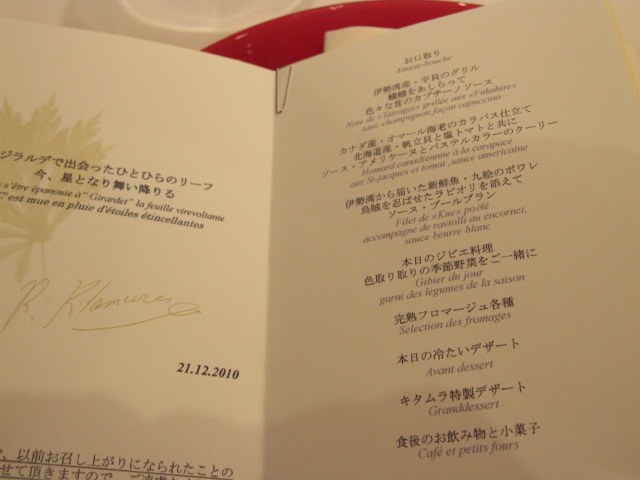 ジラルデで出会ったひとひらのリーフ
今、星となり舞い降りる
s'être épanouie à "Girardet" la feuille virevoltante
C'est mue en pluie d'étoiles étincellantes
R. Kitamura
21.12.2010
以前お召し上がりになられたことの
せて頂きますので、ご遠慮
お口取り
Amuse-bouche
伊勢湾産・平貝のグリル
鱶鰭をあしらって
色々な茸のカプチーノソース
Noie de «Tairagai» grillée aux «Fukahire»
sauc champignon façon capuccino
カナダ産・オマール海老のカラパス仕立て
北海道産・帆立貝と塩トマトと共に
ソース・アメリケーヌとパステルカラーのクーリー
Homard canadienne à la carapace
aux St-jacques et tomat , sauce americaine
伊勢湾から届いた新鮮魚・九絵のポワレ
烏賊を忍ばせたラビオリを添えて
ソース・ブールブラン
Filet de «Kue» poêlé
accompagne de raviolli au encornet,
sauce beurre blanc
本日のジビエ料理
色取り取りの季節野菜をご一緒に
Gibier du jour
garni des légumes de la saison
完熟フロマージュ各種
Sélection des fromages
本日の冷たいデザート
Avant dessert
キタムラ特製デザート
Granddessert
食後のお飲み物と小菓子
Café et petits fours